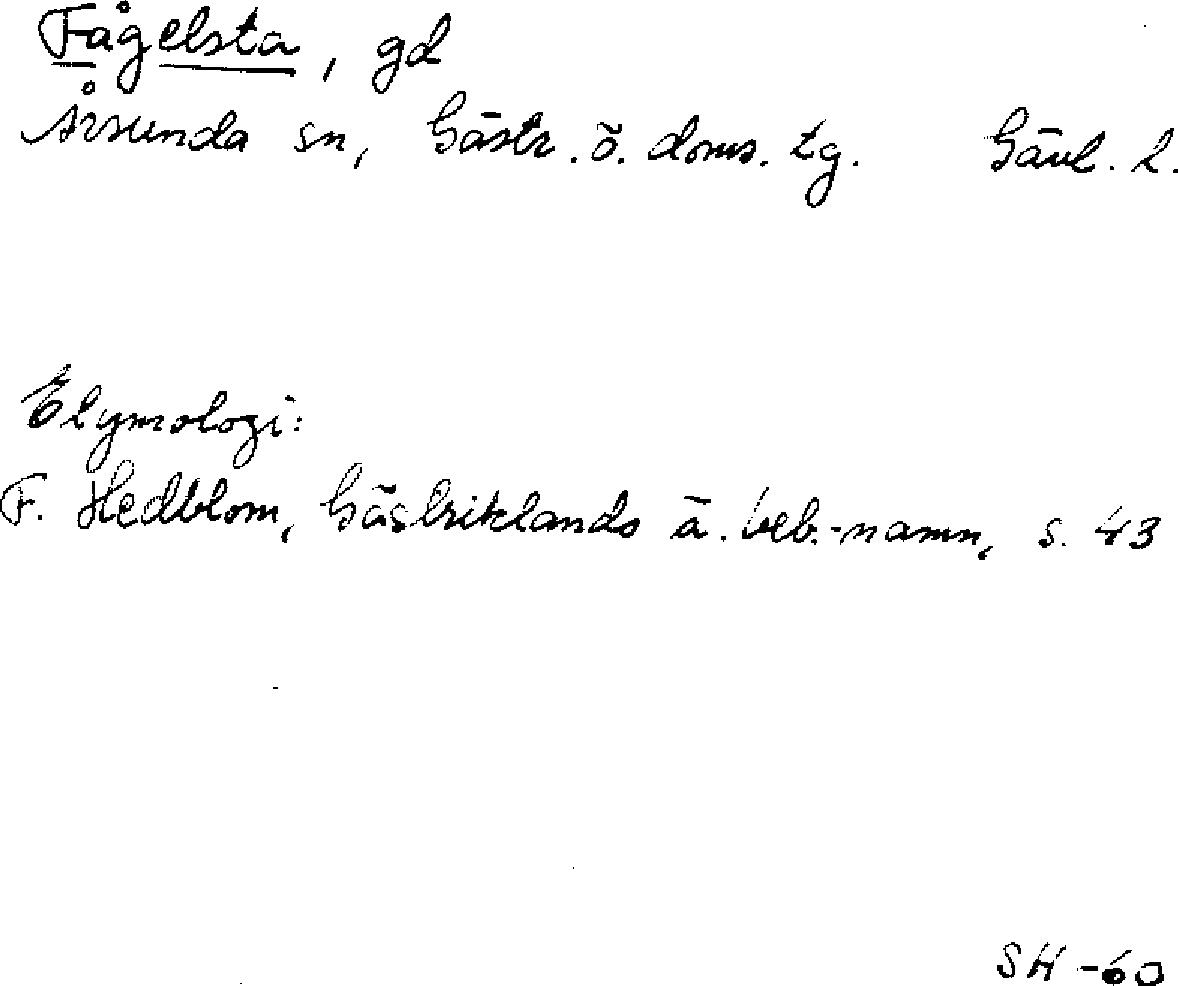 Fågelsta, gd
Årsunda sn, Gästr. ö. doms. tg. Gävl. l.
Etymologi:
F. Hedblom, Gästriklands ä. beb.-namn, s. 43
SH -60